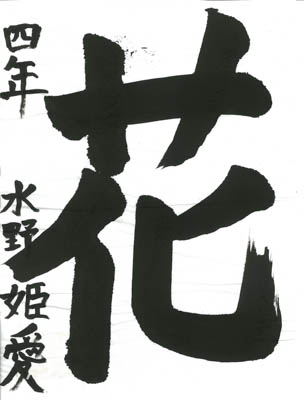 花
四年 水野姫愛